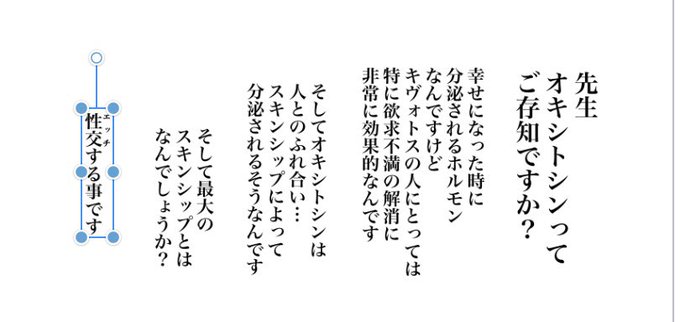 先生
オキシトシンって
ご存知ですか?
幸せになった時に
分泌されるホルモン
なんですけど
キヴォトスの人にとっては
特に欲求不満の解消に
非常に効果的なんです
そしてオキシトシンは
人とのふれ合い…
スキンシップによって
分泌されるそうなんです
そして最大の
スキンシップとは
なんでしょうか?
エッチ
性交する事です